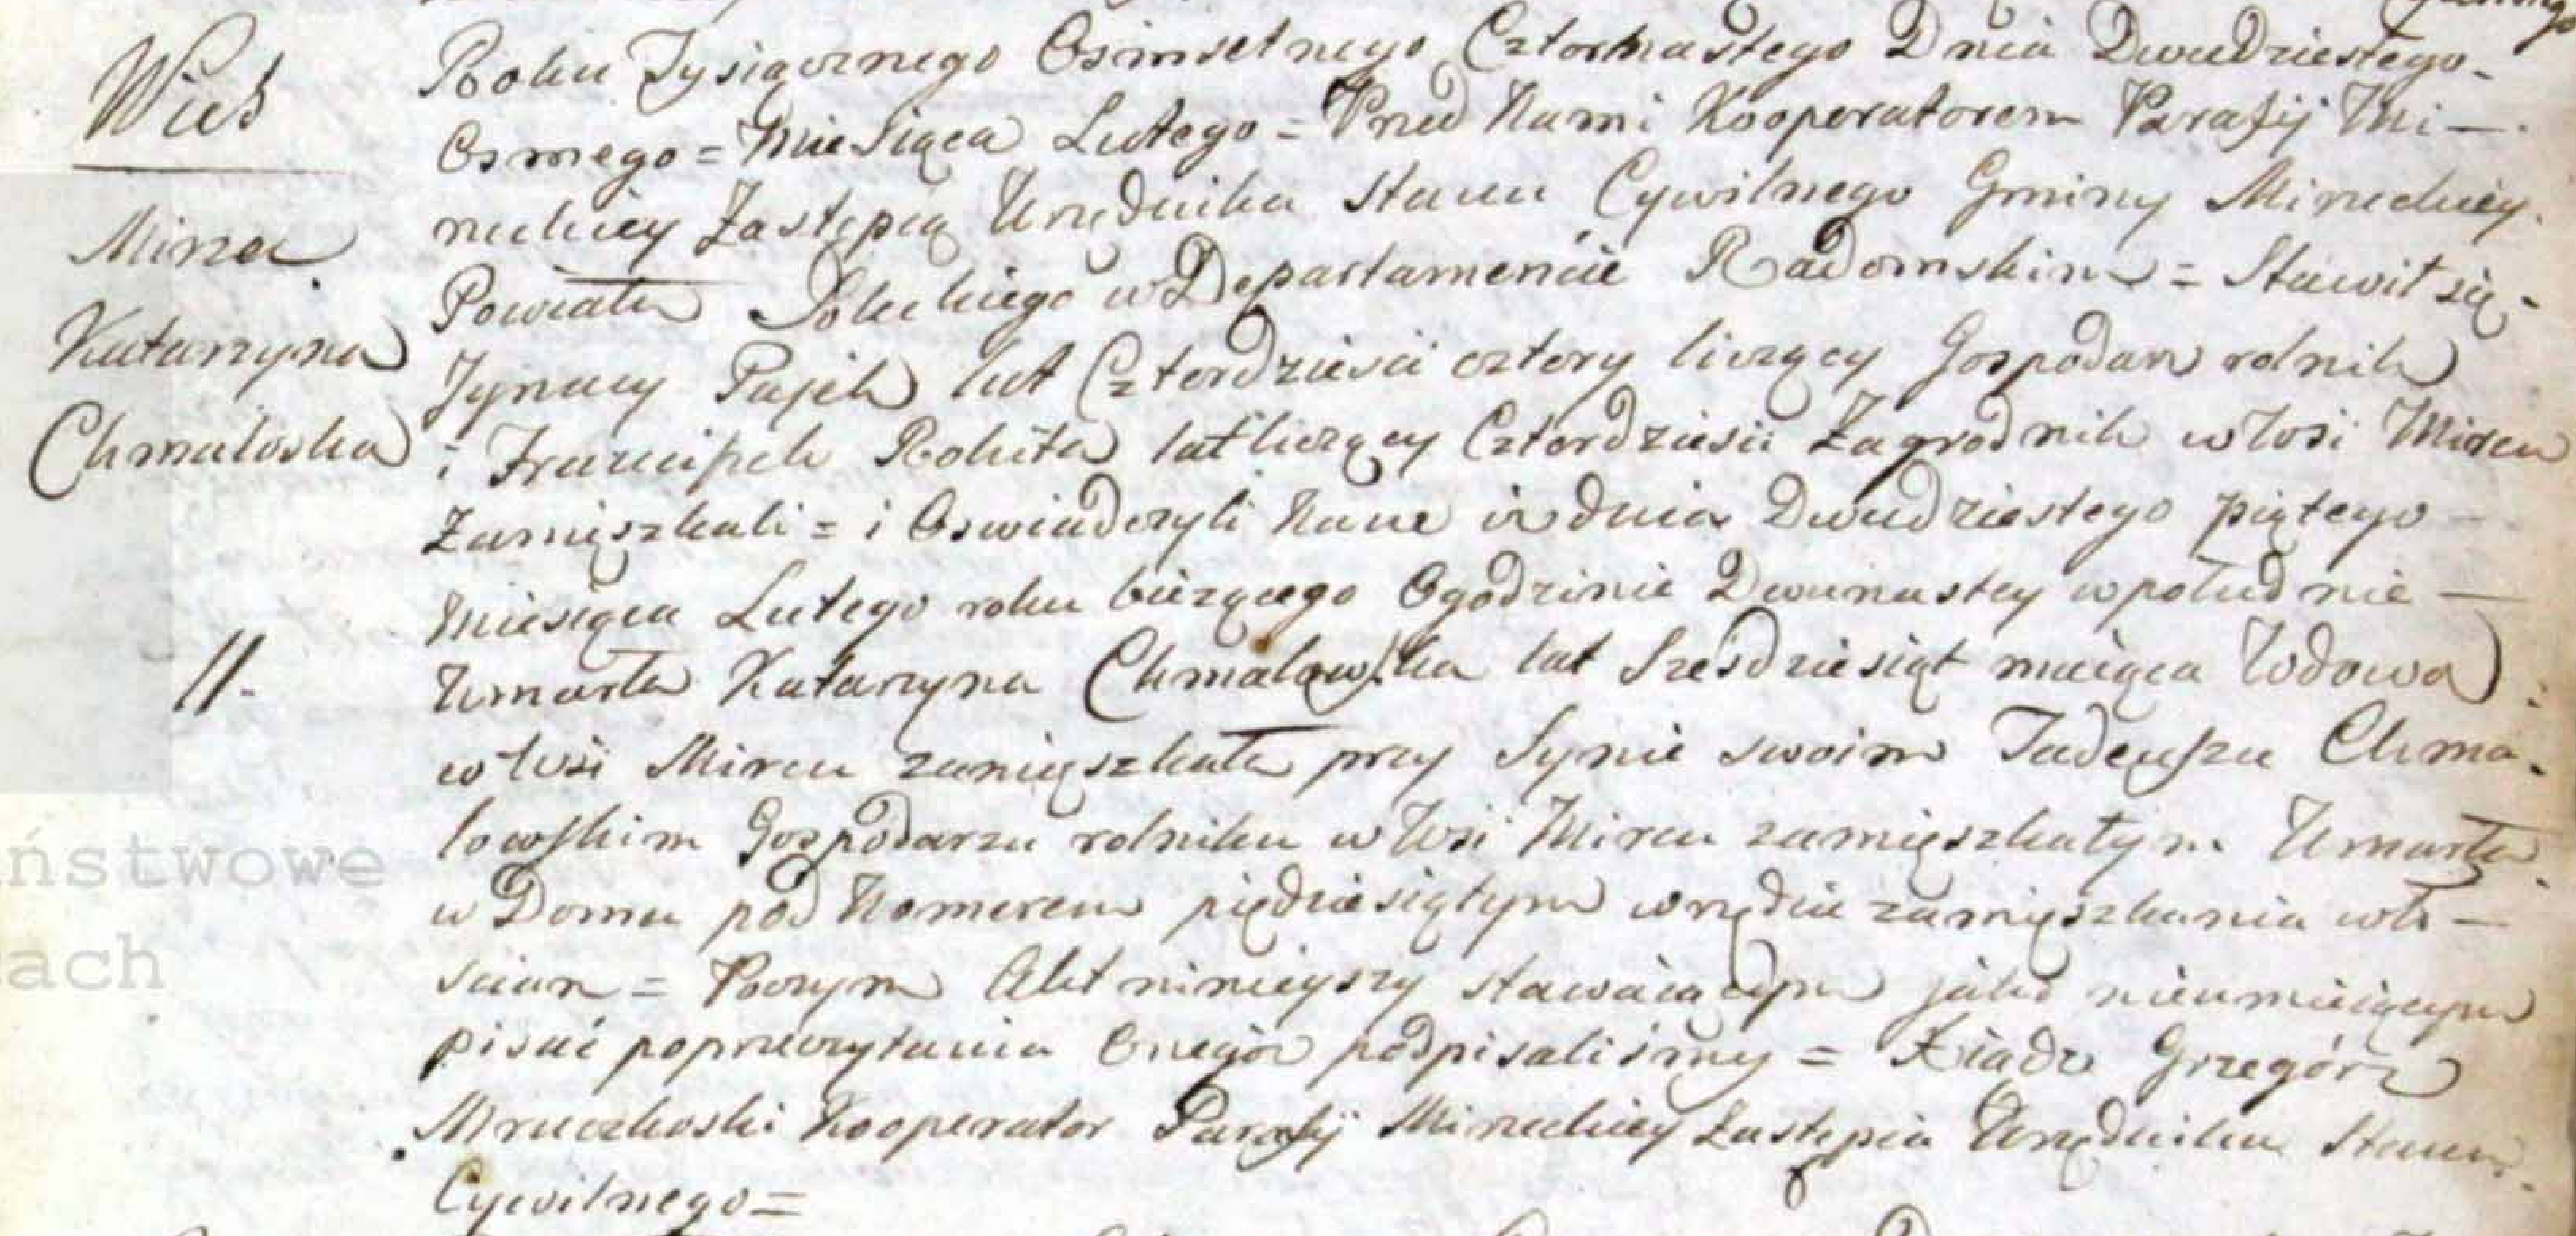 Wieś
Mirzec
Katarzyna
Chmaloska
11.
Roku Tysiącznego Osimsetnego Czternastego Dnia Dwudziestego
Osmego = Miesiąca Lutego = Przed Nami Kooperatorem Parafij Mi-
rzeckiey Zastępcą Urzędnika Stanu Cywilnego Gminy Mirzeckiey
Powiatu Soleckiego w Departamencie Radomskim = Stawił się
Jgnacy Pajek lat Czterdzieści cztery liczący Gospodarz rolnik
i Franciszek Rokita lat liczący Czterdzieści Zagrodnik w Wsi Mircu
Zamięszkali = i Oswiadczyli Nam iż dnia Dwudziestego piątego
Miesiąca Lutego roku bieżącego O godzinie Dwunastey w południe —
Umarła Katarzyna Chmalowska lat Sześdziesiąt maiąca Wdowa
w Wsi Mircu zamięszkała przy Synie swoim Tadeuszu Chma-
lowskim Gospodarzu rolniku w Wsi Mircu zamięszkałym Umarła
w Domu pod Numerem piędziesiątym w rzędzie zamięszkania wło-
scian = Poczym Akt ninieyszy stawaiącym jako nieumieiącym
pisać po przeczytaniu Onegoż podpisaliśmy = Xiądz Grzegórz
Mruczkoski Kooperator Parafij Mirzeckiey Zastępca Urzędnika Stanu
Cywilnego =
ństwowe
ach